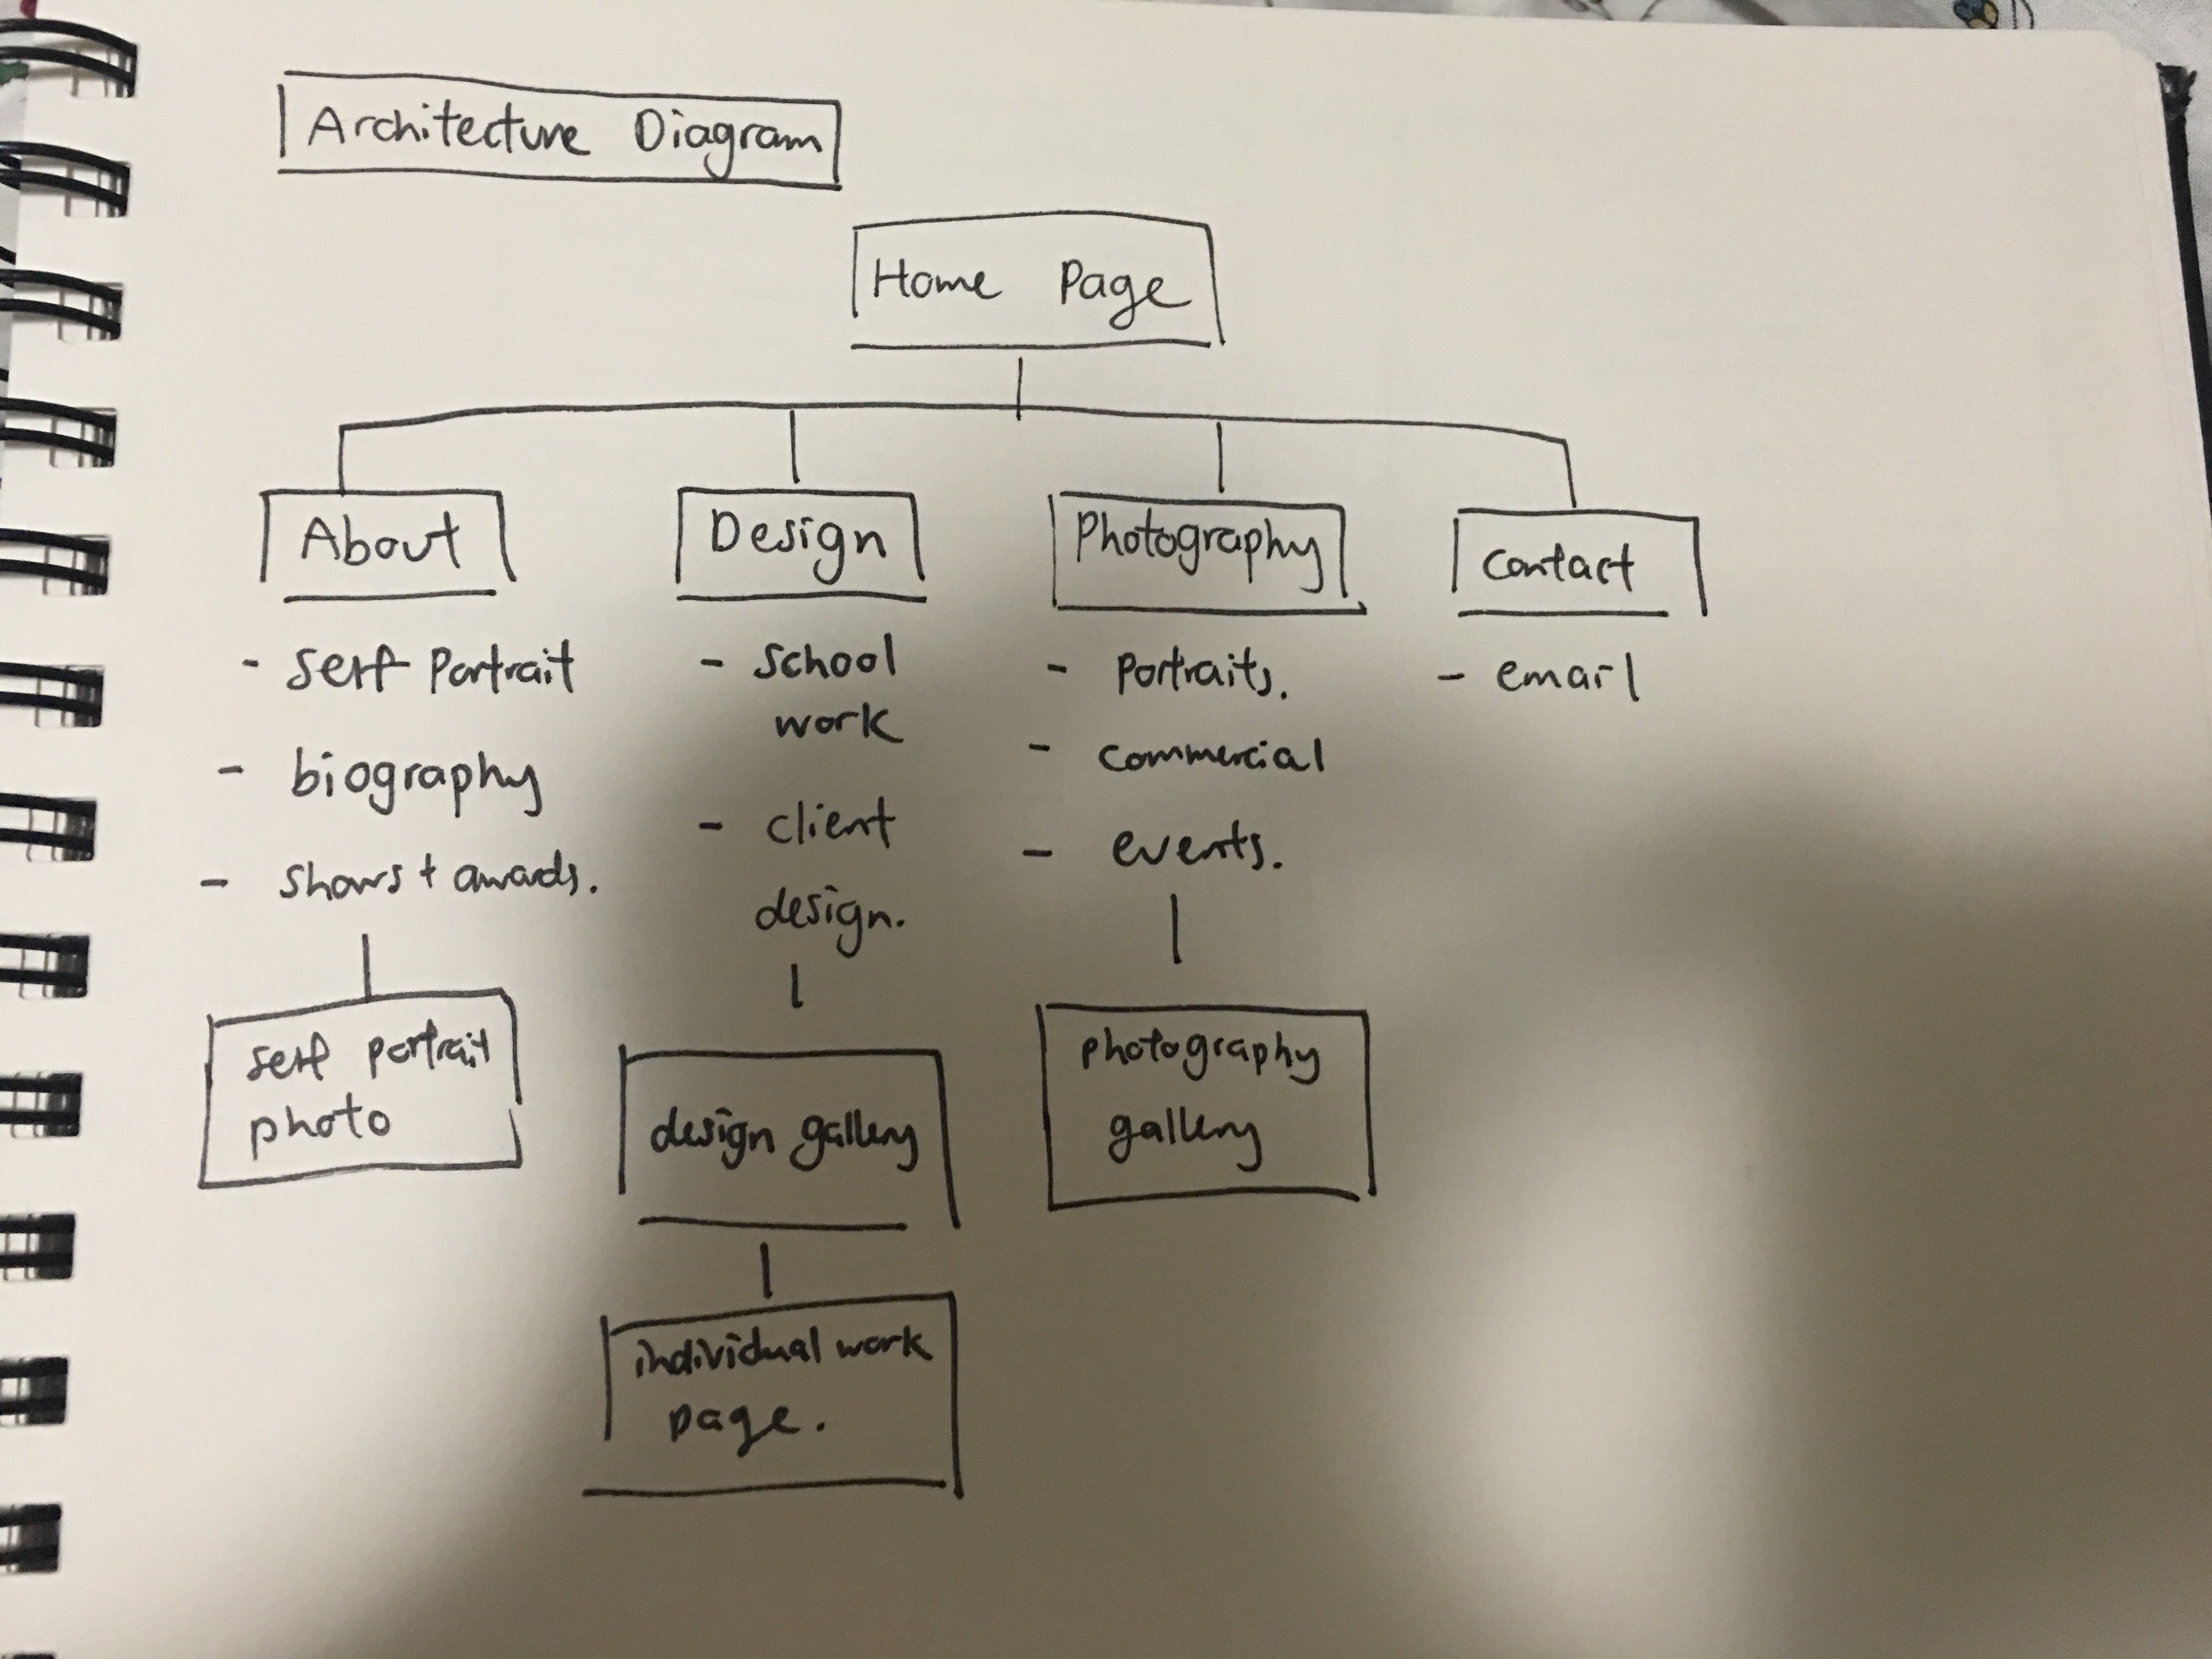 Architecture Diagram
Home Page
About
- self portrait
- biography
- shows + awards.
self portrait
photo
Design
- school
work
- client
design.
design gallery
individual work
page.
Photography
- portraits.
- commercial
- events.
photography
gallery
contact
- email